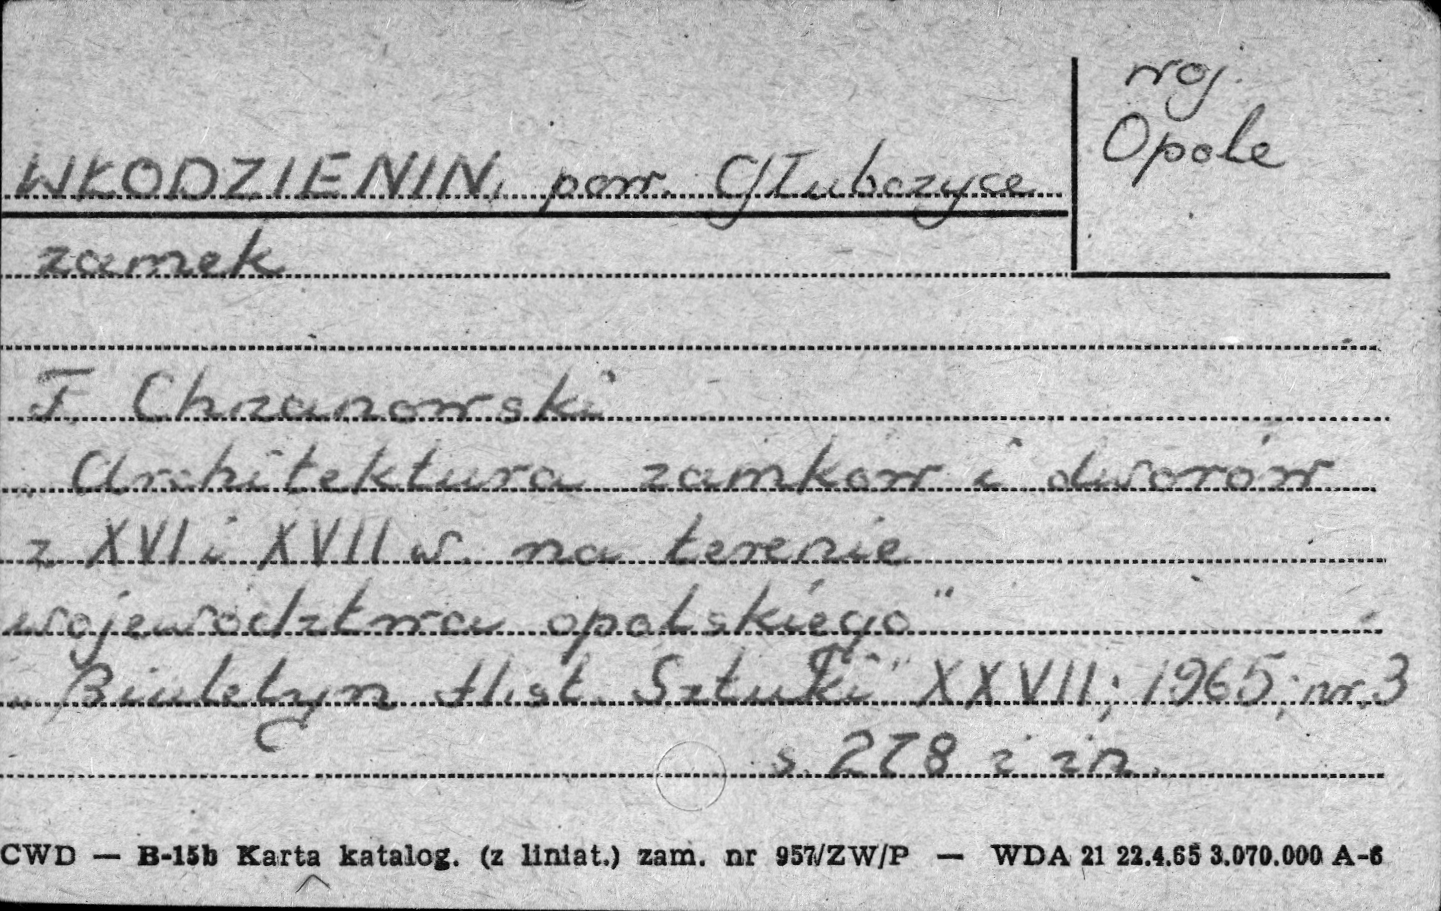 woj.
Opole
WŁODZIENIN, pow. Głubczyce
zamek
T. Chrzanowski
„Architektura zamków i dworów
z XVI i XVII w. na terenie
województwa opolskiego"
„Biuletyn Hist. Sztuki" XXVII; 1965; nr. 3
s. 278 i in.
CWD — B-15b Karta katalog. (z liniat.) zam. nr 957/ZW/P — WDA 21 22.4.65 3.070.000 A-6